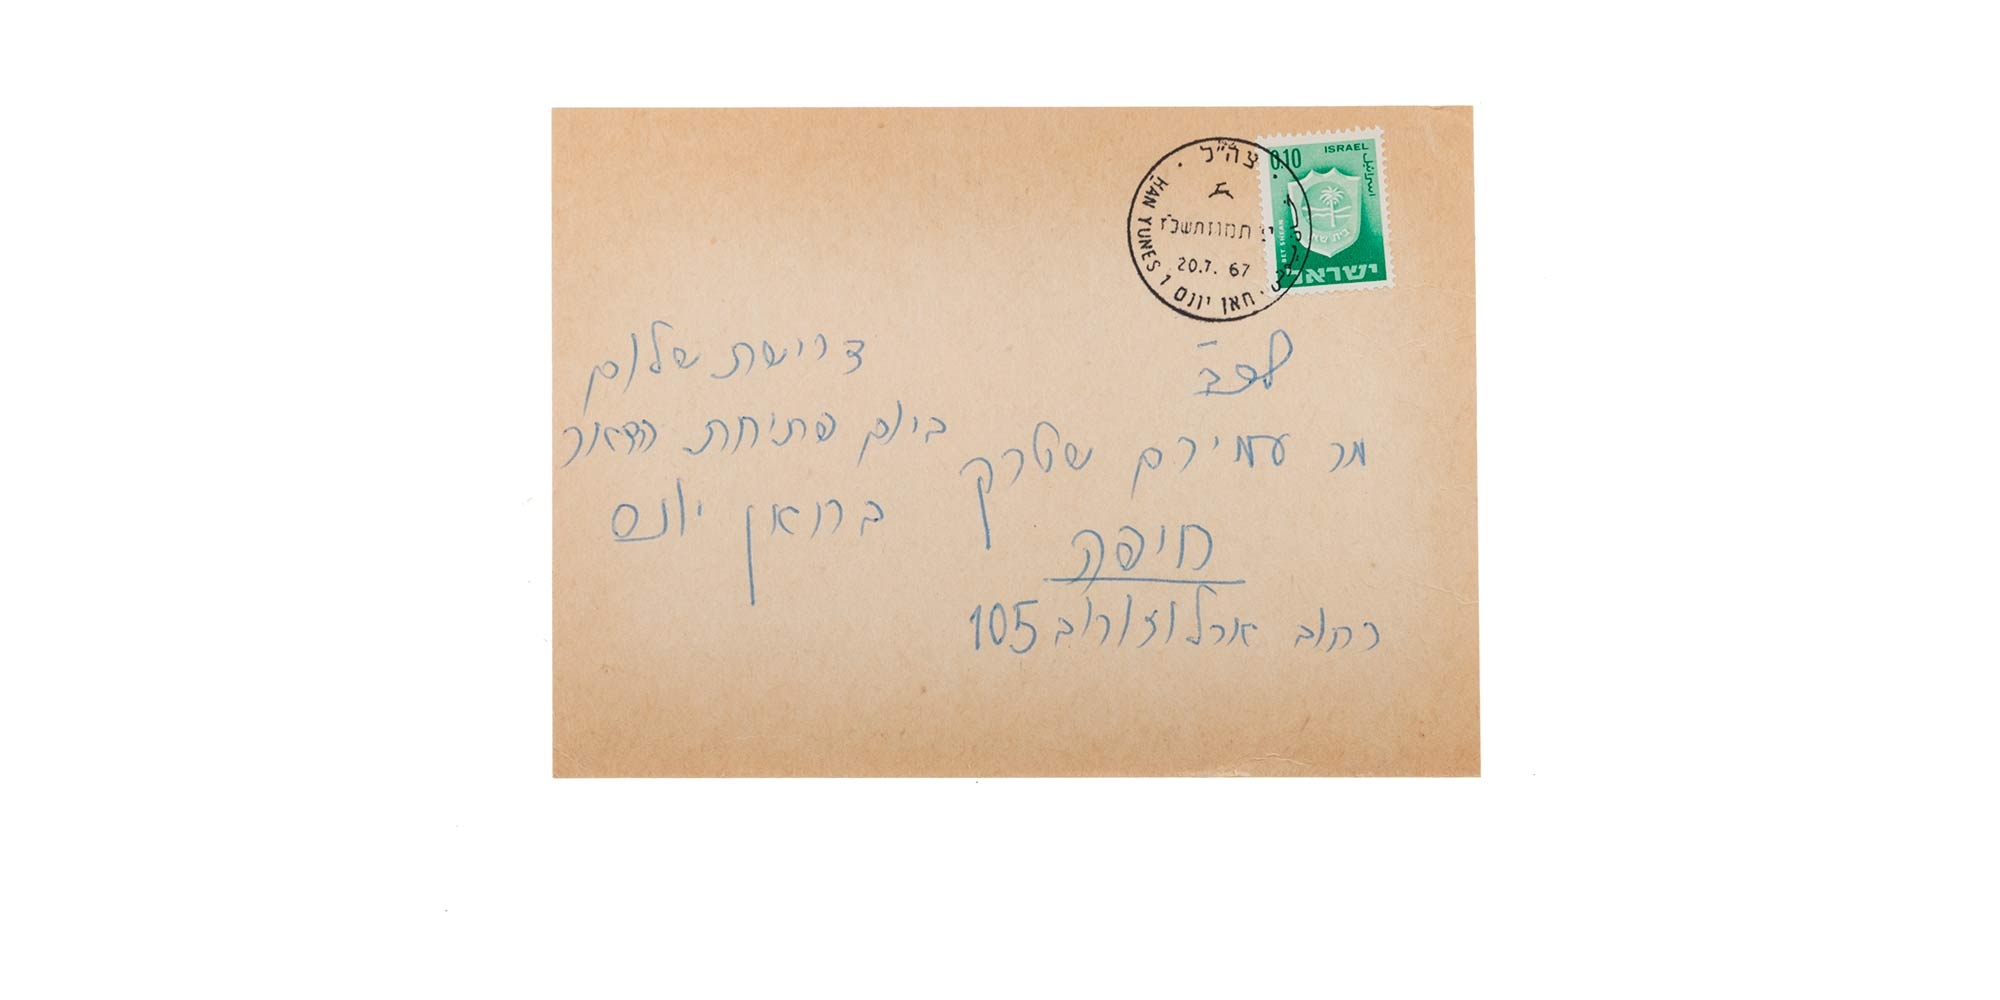 צה"ל
תמוז תשכ"ז
20.7. 67
HAN YUNES 1 חאן יונס
0.10 ISRAEL
اسرائيل
BET SHEAN
בית שאן
ישראל
לכב'
מר עמירם שטרק
חיפה
רחוב ארלוזורוב 105
דרישת שלום
ביום פתיחת הדאר
בחאן יונס